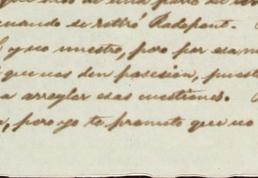 cuando se retiró Radepont.
y no nuestro, pero por esa
que nos den posesión, puest
a arreglar esas cuestiones.
, pero yo te prometo que no